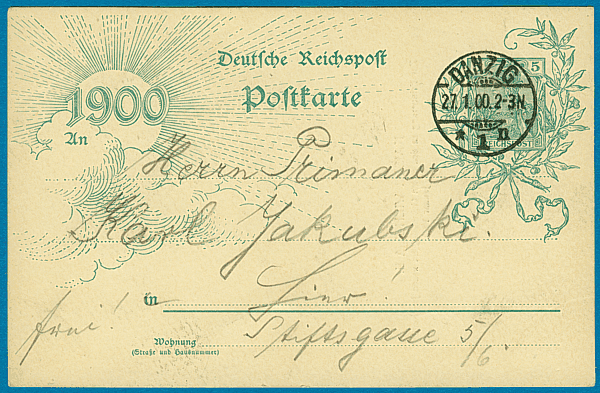 Deutsche Reichspost
Postkarte
1900
5
DANZIG
27.1.00.2-3N.
* 1 n
REICHSPOST
An
Herrn Primaner
Karl Jakubski.
in Hier!
frei!
Stiftsgasse 5/6.
Wohnung
(Straße und Hausnummer)